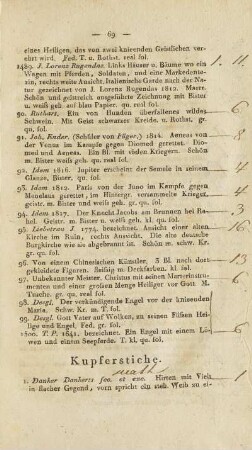 — 69 —
eines Heiligen, das von zwei knieenden Geistlichen ver-
ehrt wird. Fed. T. u. Rothst. reel fol.
1489. J. Lorenz Rugendas. links Häuser u. Bäume wo ein
Wagen mit Pferden, Soldaten, und eine Markedente-
rin, rechts weite Aussicht. Italienische Garde nach der Na-
tur gezeichnet von J. Lorenz Rugendas 1812. Maere.
Schön und geistreich ausgeführte Zeichnung mit Bister
m. weiß geh. auf blau Papier. qu. reel fol.
90. Ruthart. Ein von Hunden überfallenes wildes
Schwein. Mit Geist schwarzer Kreide. u. Rothst. gr.
qu. fol.
91. Joh. Ender. (Schüler von Füger.) 1814. Aeneas von
der Venus im Kampfe gegen Diomed gerettet. Diomed-
und Aeneas. Ein fol. Bl. mit vielen Kriegern. Schön
m. Bister weiß geh. auf br. Papier. gr. qu. reel fol.
92. Idem 1816. Jupiter erscheint der Semele in seinem
Glanze, Bister. gr. qu. fol.
93. Idem 1812. Paris von der Juno im Kampfe gegen
Menelaus gerettet, im Hintergr. versammelte Krieger,
geistr. m. Bister weiß geh. gr. qu. reel fol.
94. Idem 1817. Der Knecht Jacobs am Brunnen bei Ra-
hel. Geistr. m. Bister u. weiß geh. gr. qu. reel fol.
95. Liebetrau J. 1775. bezeichnet. Ansicht einer alten
Kirche im Ruin, rechts Aussicht. Die alte deutsche
Burgkirche wie als abgebrannt ist. Schön m. schw. Kr.
gr. qu. fol.
96. Von einem Chinesischen Künstler. 3 Bl. nach dort
gekleidete Figuren. fleißig m. Deckfarben. kl. fol.
97. Unbekannter Meister. Christus mit seinen Marterinstru-
menten und einer großen Menge Heiliger vor Gott M.
Tusche. gr. qu. reel fol.
98. Desgl. Der verkündigende Engel vor der knieenden
Maria. Schw. Kr. m. T. fol.
99. Desgl. Gott Vater auf Wolken, zu seinen Füßen Hei-
lige und Engel. Fed. gr. fol.
1500. T. P. 1641. bezeichnet. Ein Engel mit einem Lö-
wen und einem Seepferde. T. kl. qu. fol.
Kupferstiche.
1. Danker Danherts fec. et exc. Hirten mit Vieh
in flacher Gegend, vorn spricht ein stehl. Weib zu ei-